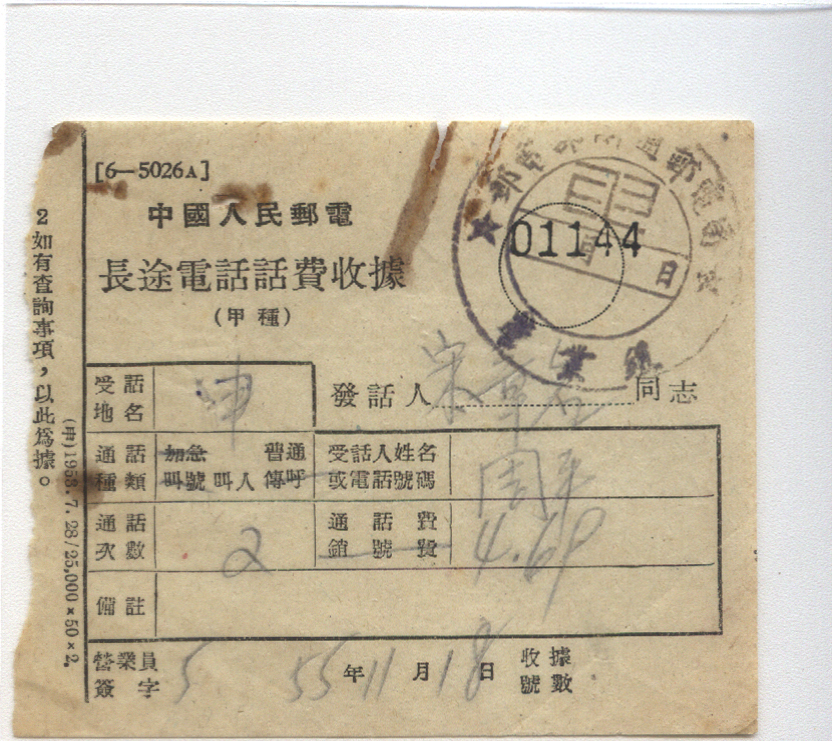 [6—5026A]
中國人民郵電
長途電話話費收據
(甲種)
01144
日
營業
發話人 宋章 同志
受話
地名
通話
種類
加急 普通
叫號 叫人 傳呼
受話人姓名
或電話號碼
周
通話
次數
2
通話費
銷號費
4.69
備註
營業員
簽字
5
55年11月18日
收據
號數
2如有查詢事項，以此爲據。
(申)1953.7.28/25,000×50×2.